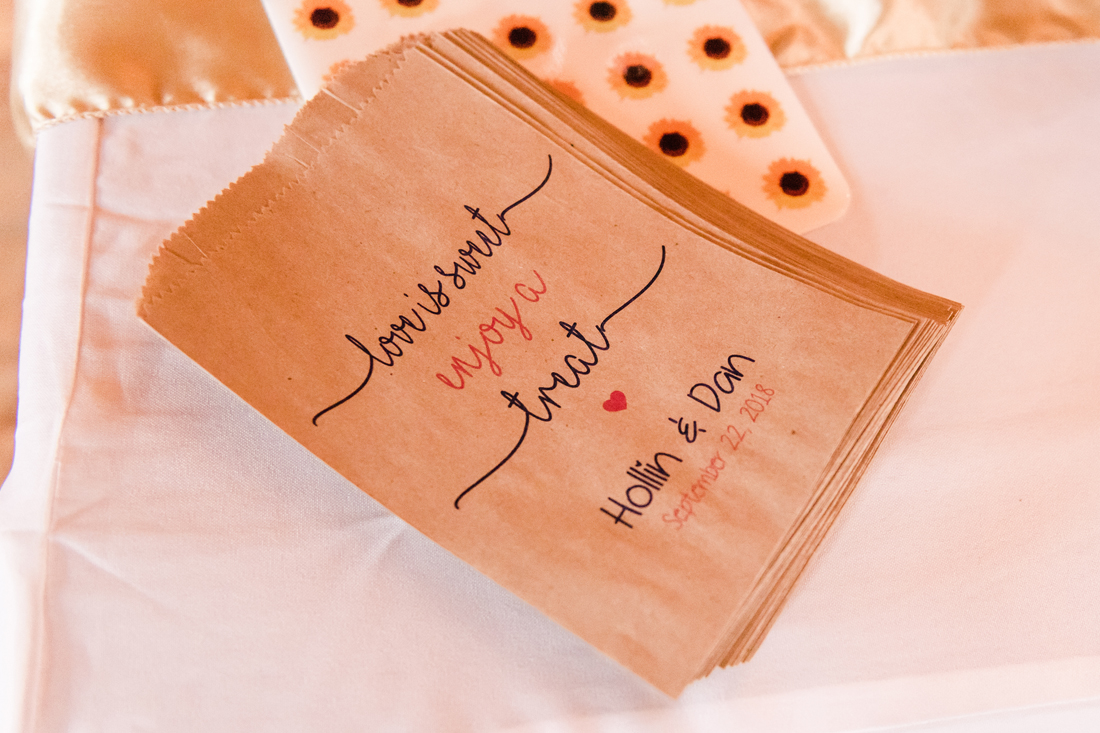 love is sweet
enjoy a
treat
Hollin & Dan
September 22, 2018